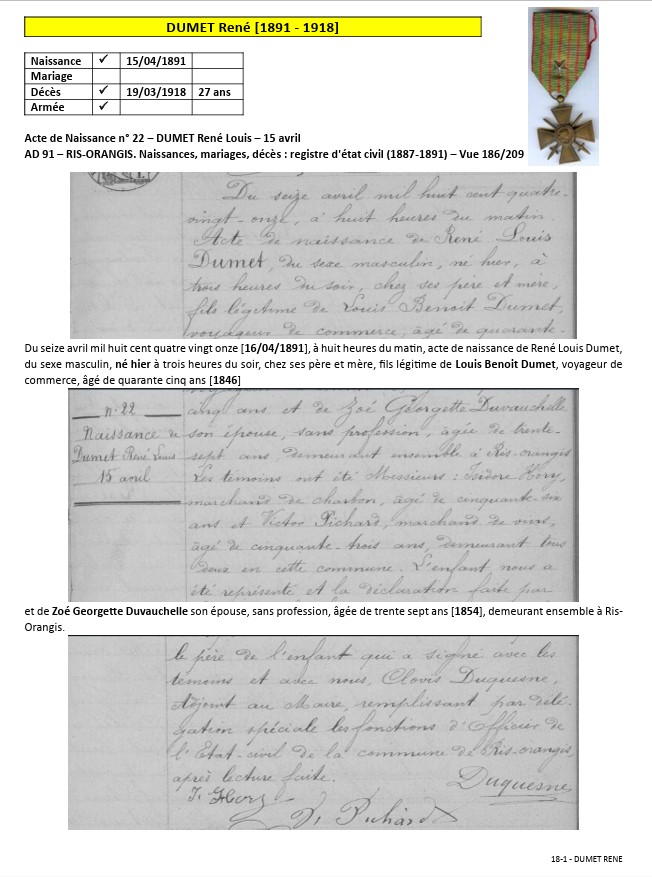 DUMET René [1891 - 1918]
Naissance ✓ 15/04/1891
Mariage
Décès ✓ 19/03/1918 27 ans
Armée ✓
Acte de Naissance n° 22 – DUMET René Louis – 15 avril
AD 91 – RIS-ORANGIS. Naissances, mariages, décès : registre d'état civil (1887-1891) – Vue 186/209
Du seize avril mil huit cent quatre-
vingt-onze, à huit heures du matin.
Acte de naissance de René Louis
Dumet, du sexe masculin, né hier, à
trois heures du soir, chez ses père et mère,
fils légitime de Louis Benoit Dumet,
voyageur de commerce, âgé de quarante-
Du seize avril mil huit cent quatre vingt onze [16/04/1891], à huit heures du matin, acte de naissance de René Louis Dumet,
du sexe masculin, né hier à trois heures du soir, chez ses père et mère, fils légitime de Louis Benoit Dumet, voyageur de
commerce, âgé de quarante cinq ans [1846]
n. 22
Naissance de
Dumet René Louis
15 avril
cinq ans et de Zoé Georgette Duvauchelle
son épouse, sans profession, âgée de trente-
sept ans, demeurant ensemble à Ris-orangis
Les témoins ont été Messieurs : Isidore Hory,
marchand de charbon, âgé de cinquante-six
ans et Victor Pichard, marchand de vins,
âgé de cinquante-trois ans, demeurant tous
deux en cette commune. L'enfant nous a
été représenté et la déclaration faite par
et de Zoé Georgette Duvauchelle son épouse, sans profession, âgée de trente sept ans [1854], demeurant ensemble à Ris-
Orangis.
le père de l'enfant qui a signé avec les
témoins et avec nous, Clovis Duquesne,
Adjoint au Maire, remplissant par délé-
gation spéciale les fonctions d'Officier de
l'Etat-civil de la commune de Ris-orangis,
après lecture faite.
Duquesne
I. Hory
V. Pichard
18-1 - DUMET RENE